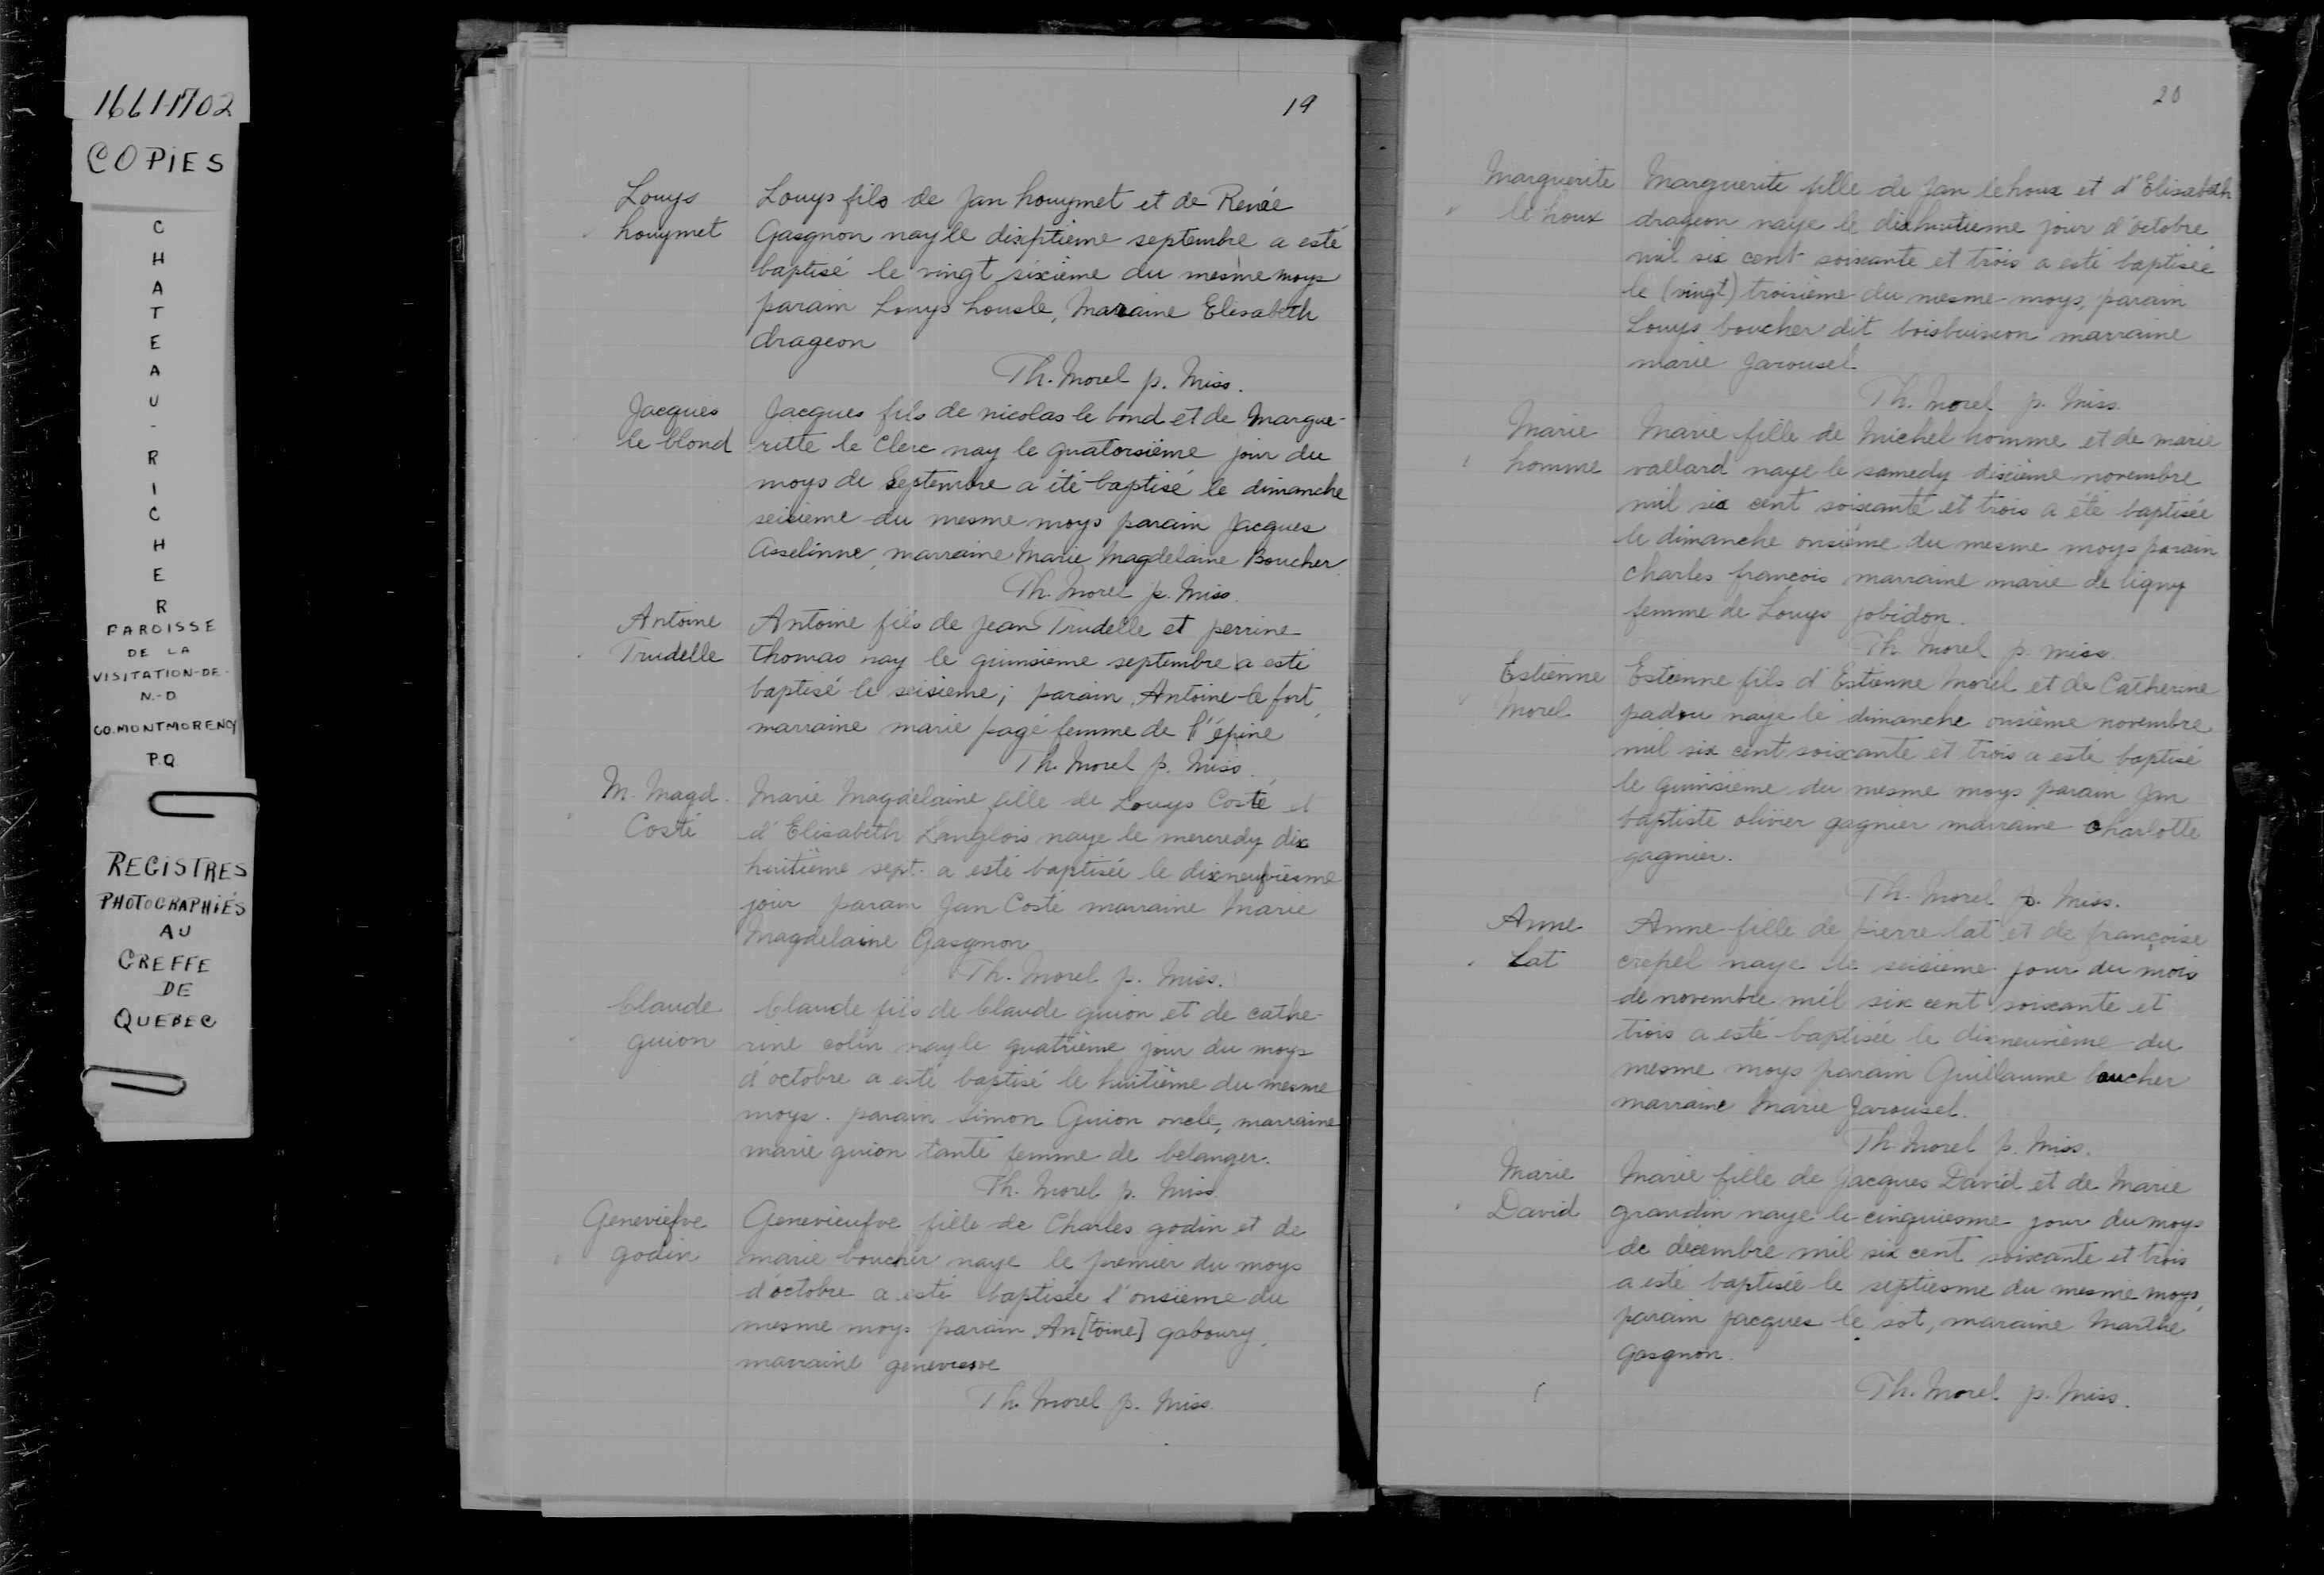 1661-1702
COPIES
CHATEAU-RICHER
PAROISSE
DE LA
VISITATION-DE-
N.-D
CO. MONTMORENCY
P.Q
REGISTRES
PHOTOGRAPHIÉS
AU
GREFFE
DE
QUEBEC
19
Louys
houymet
Louys fils de Jan houymet et de Renée
Gasgnon nay le dixseptieme septembre a esté
baptisé le vingt sixième du mesme moys
parain Louys housle, Maraine Elisabeth
drageon
Th. Morel p. Miss.
Jacques
le blond
Jacques fils de nicolas le bond et de Margue-
ritte le Clerc nay le quatorsième jour du
moys de Septembre a été baptisé le dimanche
seisieme du mesme moys parain Jacques
Asselinne, marraine Marie Magdelaine Boucher
Th. Morel p. Miss.
Antoine
Trudelle
Antoine fils de Jean Trudelle et perrine
thomas nay le quinsieme septembre a esté
baptisé le seisieme; parain Antoine le fort,
marraine marie pagé femme de l'épine
Th. Morel p. Miss.
M. Magd.
Costé
Marie Magdelaine fille de Louys Costé et
d'Elisabeth Langlois naye le mercredy dix
huitième sept. a esté baptisée le dixneufviesme
jour parain Jan Costé marraine Marie
Magdelaine Gasgnon
Th. Morel p. Miss.
Claude
guion
Claude fils de Claude guion et de cathe-
rine colin nay le quatrième jour du moys
d'octobre a esté baptisé le huitième du mesme
moys. parain Simon Guion oncle, marraine
marie guion tante femme de belanger.
Th. Morel p. Miss.
Geneviefve
godin
Genevieufve fille de Charles godin et de
marie boucher naye le premier du moys
d'octobre a esté baptisée l'onsième du
mesme moys parain An[toine] gaboury,
marraine genevieve
Th. Morel p. Miss.
20
Marguerite
le houx
Marguerite fille de Jan lehoux et d'Elisabeth
drageon naye le dixhuitieme jour d'octobre
mil six cent soixante et trois a esté baptisée
le (vingt) troisième du mesme moys, parain
Louys boucher dit boisbuisson marraine
marie Jarousel
Th. Morel p. Miss.
Marie
homme
Marie fille de Michel homme et de marie
vallard naye le samedy dixième novembre
mil six cent soixante et trois a été baptisée
le dimanche onsième du mesme moys parain
charles françois marraine marie de ligny
femme de Louys jobidon.
Th. Morel p. miss.
Estienne
Morel
Estienne fils d'Estienne Morel et de Catherine
padou naye le dimanche onsième novembre
mil six cent soixante et trois a esté baptisé
le quinsieme du mesme moys parain Jan
baptiste olivier gagnier marraine charlotte
gagnier.
Th. Morel p. Miss.
Anne
Lat
Anne fille de pierre lat et de françoise
crepel naye le seisieme jour du mois
de novembre mil six cent soixante et
trois a esté baptisée le dixneuvième du
mesme moys parain Guillaume boucher
marraine Marie Jarousel.
Th. Morel p. Miss.
Marie
David
Marie fille de Jacques David et de Marie
grandin naye le cinquiesme jour du moys
de décembre mil six cent soixante et trois
a esté baptisée le septiesme du mesme moys,
parain Jacques le sot, maraine Marthe
gasgnon.
Th. Morel p. Miss.